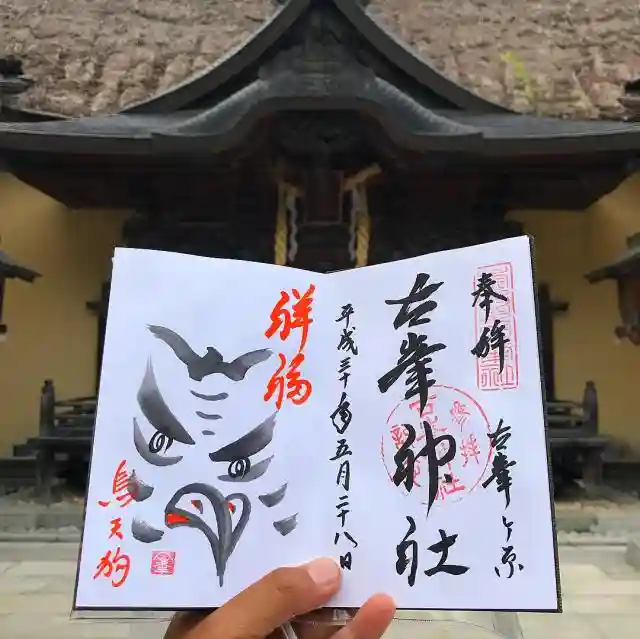 奉拝
古峯ヶ原
古峯神社
平成三十年五月二十八日
祥福
烏天狗